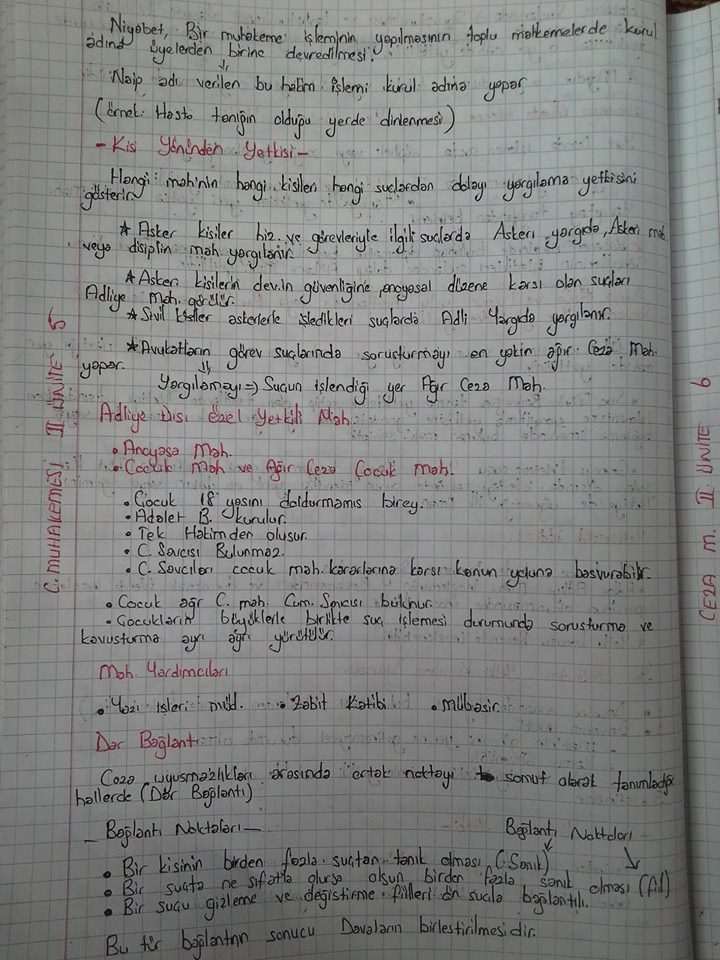 Niyabet, Bir muhakeme işleminin yapılmasının toplu mahkemelerde kurul
adına üyelerden birine devredilmesi.
Naip adı verilen bu hakim işlemi kurul adına yapar
(örnek: Hasta tanığın olduğu yerde dinlenmesi)
- Kisi Yönünden Yetkisi -
Hangi mah'nin hangi kisileri hangi suclardan dolayı yargılama yetkisini
gösterir.
★ Asker kisiler hiz. ve görevleriyle ilgili suclarda Askeri yargıda, Askeri mah
veya disiplin mah yargılanır.
★ Askeri kisilerin dev.in güvenliğine, anayasal düzene karsı olan sucları
Adliye Mah. görülür.
★ Sivil kisiler askerlerle işledikleri suclarda Adli Yargıda yargılanır.
★ Avukatların görev suclarında sorusturmayı en yakın ağır Ceza Mah.
yapar.
Yargılamayı => Suçun işlendiği yer Ağır Ceza Mah.
Adliye Dısı Özel Yetkili Mah.
• Anayasa Mah.
• Cocuk mah ve Ağır Ceza Çocuk mah.
• Çocuk 18 yasını doldurmamıs birey.
• Adalet B. kurulur.
• Tek Hakimden olusur.
• C. Savcısı Bulunmaz.
• C. Savcıları cocuk mah. kararlarına karsı kanun yoluna basvurabilir.
• Cocuk ağr C. mah. Cum. Savcısı bulunur.
• Cocukların büyüklerle birlikte suc işlemesi durumunda sorusturma ve
kovusturma ayrı ayrı yürütülür.
Mah. Yardımcıları
• Yazı işleri müd. • Zabit Katibi • Mübasir.
Dar Bağlantı
Ceza uyusmazlıkları arasında ortak noktayı somut olarak tanımladığı
hallerde (Dar Bağlantı)
- Bağlantı Noktaları -
Bağlantı Noktaları
• Bir kisinin birden fazla suçtan sanık olması (Sanık)
• Bir sucta ne sıfatla olursa olsun birden fazla sanık olması (Fiil)
• Bir sucu gizleme ve değistirme fiilleri ön sucla bağlantılı.
Bu tür bağlantının sonucu Davaların birlestirilmesidir.
C. MUHAKEMESİ II ÜNİTE 5
CEZA M. II ÜNİTE 6